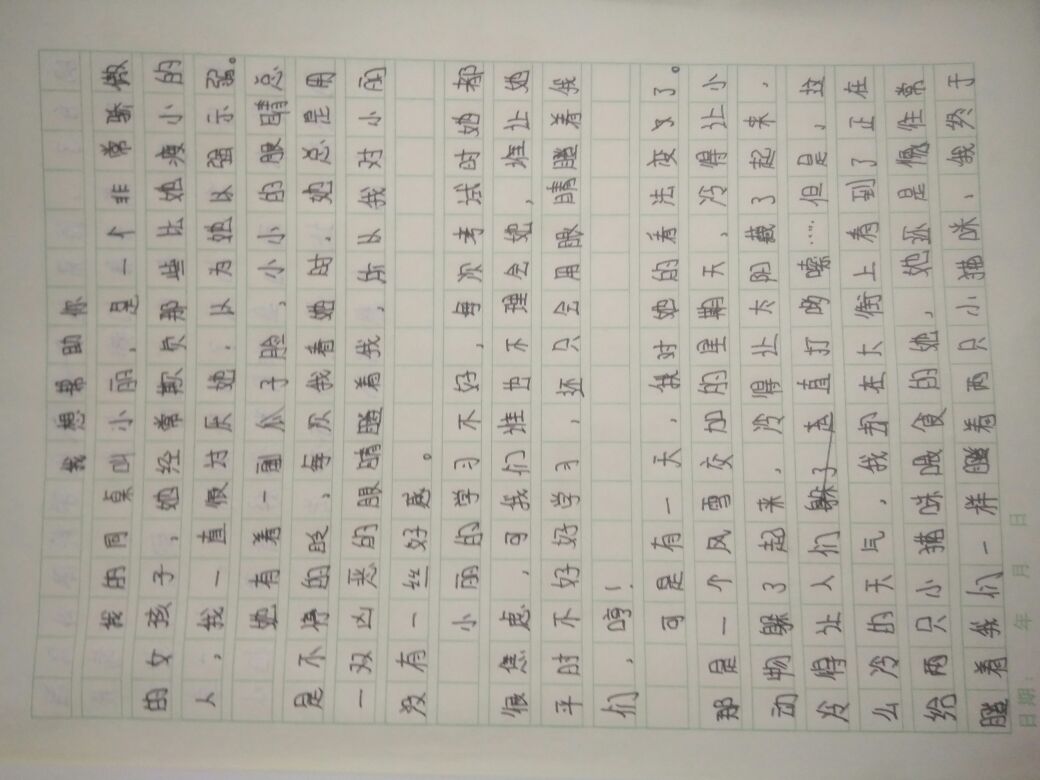 我想帮助你
我的同桌叫小丽,是一个非常骄傲
的女孩子,她经常欺负那些比她瘦小的
人,我一直很讨厌她,以为她以强示弱。
她有着一副瓜子脸,小小的眼睛总
是不停的眨,每次我看她时,她总是用
一双凶恶的眼睛瞪着我,所以我对小丽
没有一丝好感。
小丽的学习不好,每次考试时她都
很焦虑,可我们谁也不理会她,谁让她
平时不好好学习,还只会用眼睛瞪着我
们,哼!
可是有一天,我对她的看法变了。
那是一个风雪交加的星期天,冷得让小
动物躲了起来,冷得让太阳藏了起来,
冷得让人们直打哟嗦……但是,这
么冷的天气,我却在大街上看到了正在
给两只小猫咪喂食的她,她还是像往常
瞪着我们一样瞪着两只小猫咪,我终于
日期: 年 月 日